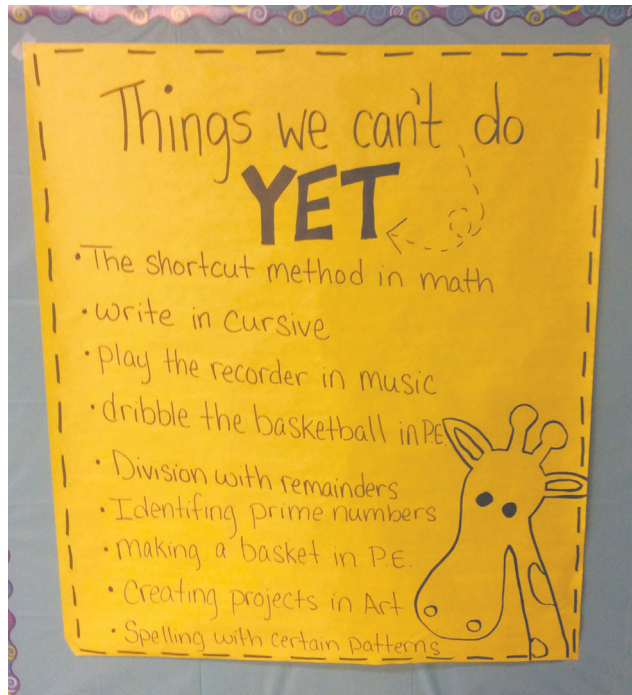 Things we can't do
YET
• The shortcut method in math
• write in cursive
• play the recorder in music
• dribble the basketball in P.E.
• Division with remainders
• Identifing prime numbers
• making a basket in P.E.
• Creating projects in Art
• Spelling with certain patterns